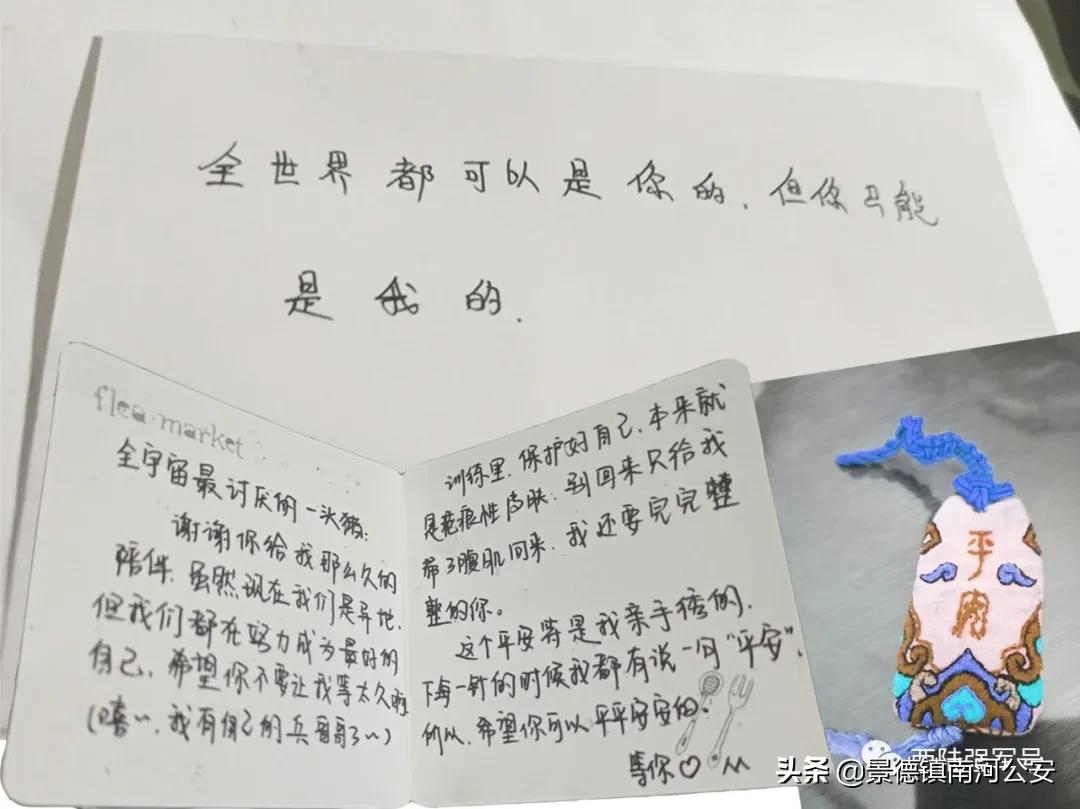 全世界都可以是你的,但你只能
是我的.
flea·market
全宇宙最讨厌的一头猪:
谢谢你给我那么久的
陪伴,虽然现在我们是异地,
但我们都在努力成为最好的
自己,希望你不要让我等太久啊
(嘻〃,我有自己的兵哥哥了〃)
训练里,保护好自己,本来就
是疤痕性皮肤;别回来只给我
带了腹肌回来,我还要完完整
整的你。
这个平安符是我亲手绣的,
下每一针的时候我都有说一句“平安”,
所以,希望你可以平平安安的.
等你♡
平安
西陆强军号
头条 @景德镇南河公安